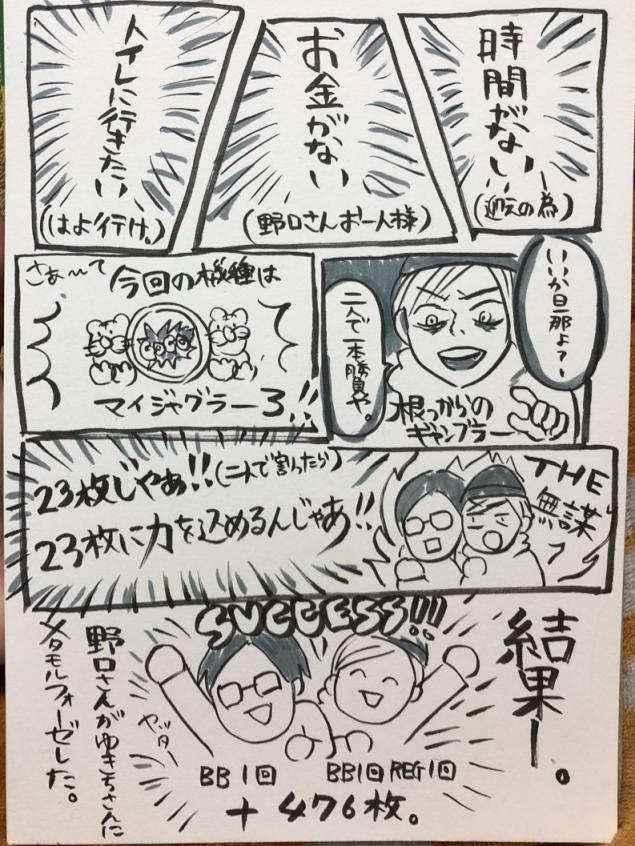 時間がない
(迎えの為)
お金がない
(野口さんお一人様)
トイレに行きたい
(はよ行け。)
いいか旦那よ?
二人で一本勝負や。
根っからの
ギャンブラー
さぁ〜て
今回の機種は
マイジャグラー3!!
THE
無謀
23枚じゃあ!!(二人で割ったら)
23枚に力を込めるんじゃあ!!
結果ー。
SUCCESS!!!
ヤッター
BB1回
BB1回REG1回
+476枚。
野口さんがゆきちさんに
メタモルフォーゼした。